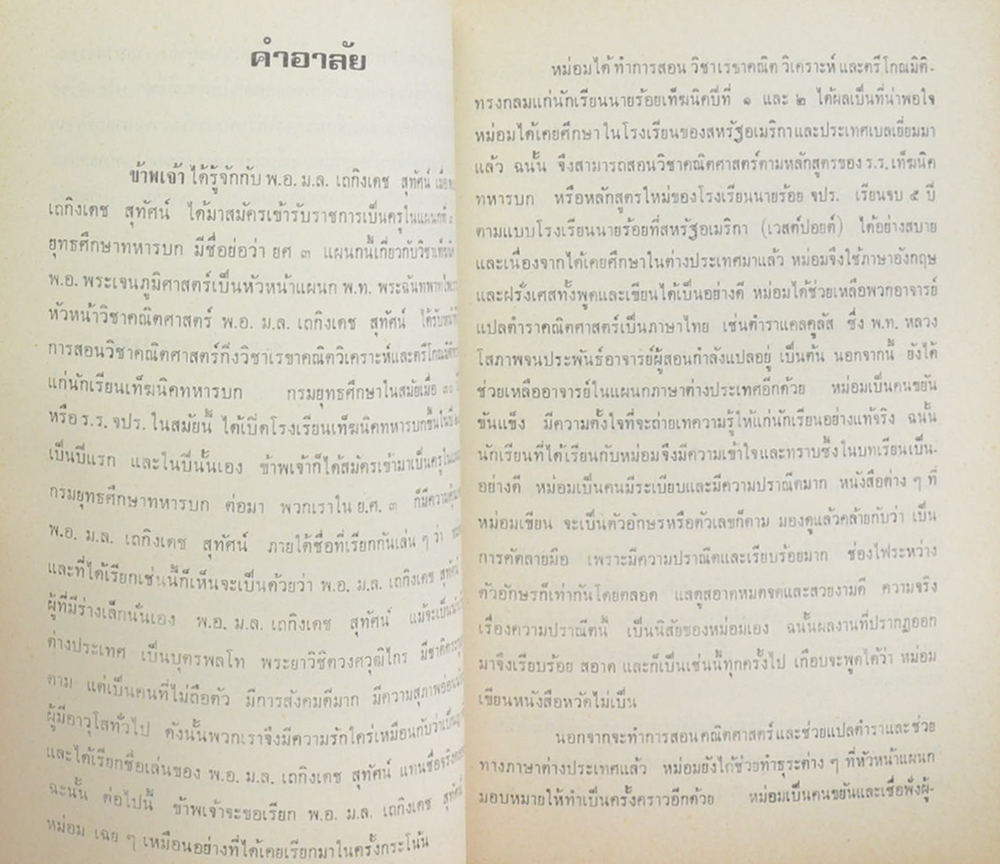 คำอาลัย
ข้าพเจ้า ได้รู้จักกับ พ.อ. ม.ล. เถกิงเดช สุทัศน์ เมื่อ
เถกิงเดช สุทัศน์ ได้มาสมัครเข้ารับราชการเป็นครูในแผนกที่ ๓
ยุทธศึกษาทหารบก มีชื่อย่อว่า ยศ ๓ แผนกนี้เกี่ยวกับวิชา
พ.อ. พระเจนภูมิศาสตร์เป็นหัวหน้าแผนก พ.ท.
หัวหน้าวิชาคณิตศาสตร์ พ.อ. ม.ล. เถกิงเดช สุทัศน์ ได้รับหน้าที่
การสอนวิชาคณิตศาสตร์ถึงวิชาเรขาคณิตวิเคราะห์และตรีโกณมิติ
แก่นักเรียนเท็ฆนิคทหารบก กรมยุทธศึกษาในสมัยเมื่อ ๓๐
หรือ ร.ร. จปร. ในสมัยนี้ ได้เปิดโรงเรียนเท็ฆนิคทหารบกขึ้นในปี
เป็นปีแรก และในปีนั้นเอง ข้าพเจ้าก็ได้สมัครเข้ามาเป็นครูใน
กรมยุทธศึกษาทหารบก ต่อมา พวกเราใน ย.ศ. ๓ ก็มีความ
พ.อ. ม.ล. เถกิงเดช สุทัศน์ ภายใต้ชื่อที่เรียกกันเล่น ๆ ว่า
และที่ได้เรียกเช่นนี้ก็เห็นจะเป็นด้วยว่า พ.อ. ม.ล. เถกิงเดช สุทัศน์
ผู้ที่มีร่างเล็กนั่นเอง พ.อ. ม.ล. เถกิงเดช สุทัศน์ แม้จะเป็น
ต่างประเทศ เป็นบุตรพลโท พระยาวิชิตวงศวุฒิไกร มีชาติตระกูล
ตาม แต่เป็นคนที่ไม่ถือตัว มีการสังคมดีมาก มีความสุภาพอ่อน
ผู้มีอาวุโสทั่วไป ดังนั้นพวกเราจึงมีความรักใคร่เหมือนกับว่าเป็น
และได้เรียกชื่อเล่นของ พ.อ. ม.ล. เถกิงเดช สุทัศน์ แทนชื่อจริง
ฉะนั้น ต่อไปนี้ ข้าพเจ้าจะขอเรียก พ.อ. ม.ล. เถกิงเดช สุทัศน์
หม่อม เฉย ๆ เหมือนอย่างที่ได้เคยเรียกมาในครั้งกระโน้น
หม่อมได้ทำการสอน วิชาเรขาคณิต วิเคราะห์ และตรีโกณมิติ-
ทรงกลมแก่นักเรียนนายร้อยเท็ฆนิคปีที่ ๑ และ ๒ ได้ผลเป็นที่น่าพอใจ
หม่อมได้เคยศึกษาในโรงเรียนของสหรัฐอเมริกาและประเทศเบลเยี่ยมมา
แล้ว ฉนั้น จึงสามารถสอนวิชาคณิตศาสตร์ตามหลักสูตรของ ร.ร. เท็ฆนิค
ทหารบก หรือหลักสูตรใหม่ของโรงเรียนนายร้อย จปร. เรียนจบ ๕ ปี
ตามแบบโรงเรียนนายร้อยที่สหรัฐอเมริกา (เวสต์ปอยต์) ได้อย่างสบาย
และเนื่องจากได้เคยศึกษาในต่างประเทศมาแล้ว หม่อมจึงใช้ภาษาอังกฤษ
และฝรั่งเศสทั้งพูดและเขียนได้เป็นอย่างดี หม่อมได้ช่วยเหลือพวกอาจารย์
แปลตำราคณิตศาสตร์เป็นภาษาไทย เช่นตำราแคลคูลัส ซึ่ง พ.ท. หลวง
โสภาพจนประพันธ์อาจารย์ผู้สอนกำลังแปลอยู่ เป็นต้น นอกจากนี้ ยังได้
ช่วยเหลืออาจารย์ในแผนกภาษาต่างประเทศอีกด้วย หม่อมเป็นคนขยัน
ขันแข็ง มีความตั้งใจที่จะถ่ายเทความรู้ให้แก่นักเรียนอย่างแท้จริง ฉนั้น
นักเรียนที่ได้เรียนกับหม่อมจึงมีความเข้าใจและทราบซึ้งในบทเรียนเป็น-
อย่างดี หม่อมเป็นคนมีระเบียบและมีความปราณีตมาก หนังสือต่าง ๆ ที่
หม่อมเขียน จะเป็นตัวอักษรหรือตัวเลขก็ตาม มองดูแล้วคล้ายกับว่า เป็น
การคัดลายมือ เพราะมีความปราณีตและเรียบร้อยมาก ช่องไฟระหว่าง
ตัวอักษรก็เท่ากันโดยตลอด แลดูสอาดหมดจดและสวยงามดี ความจริง
เรื่องความปราณีตนี้ เป็นนิสัยของหม่อมเอง ฉนั้นผลงานที่ปรากฏออก
มาจึงเรียบร้อย สอาด และก็เป็นเช่นนี้ทุกครั้งไป เกือบจะพูดได้ว่า หม่อม
เขียนหนังสือหวัดไม่เป็น
นอกจากจะทำการสอนคณิตศาสตร์และช่วยแปลตำราและช่วย
ทางภาษาต่างประเทศแล้ว หม่อมยังได้ช่วยทำธุระต่าง ๆ ที่หัวหน้าแผนก
มอบหมายให้ทำเป็นครั้งคราวอีกด้วย หม่อมเป็นคนขยันและเชื่อฟังผู้-